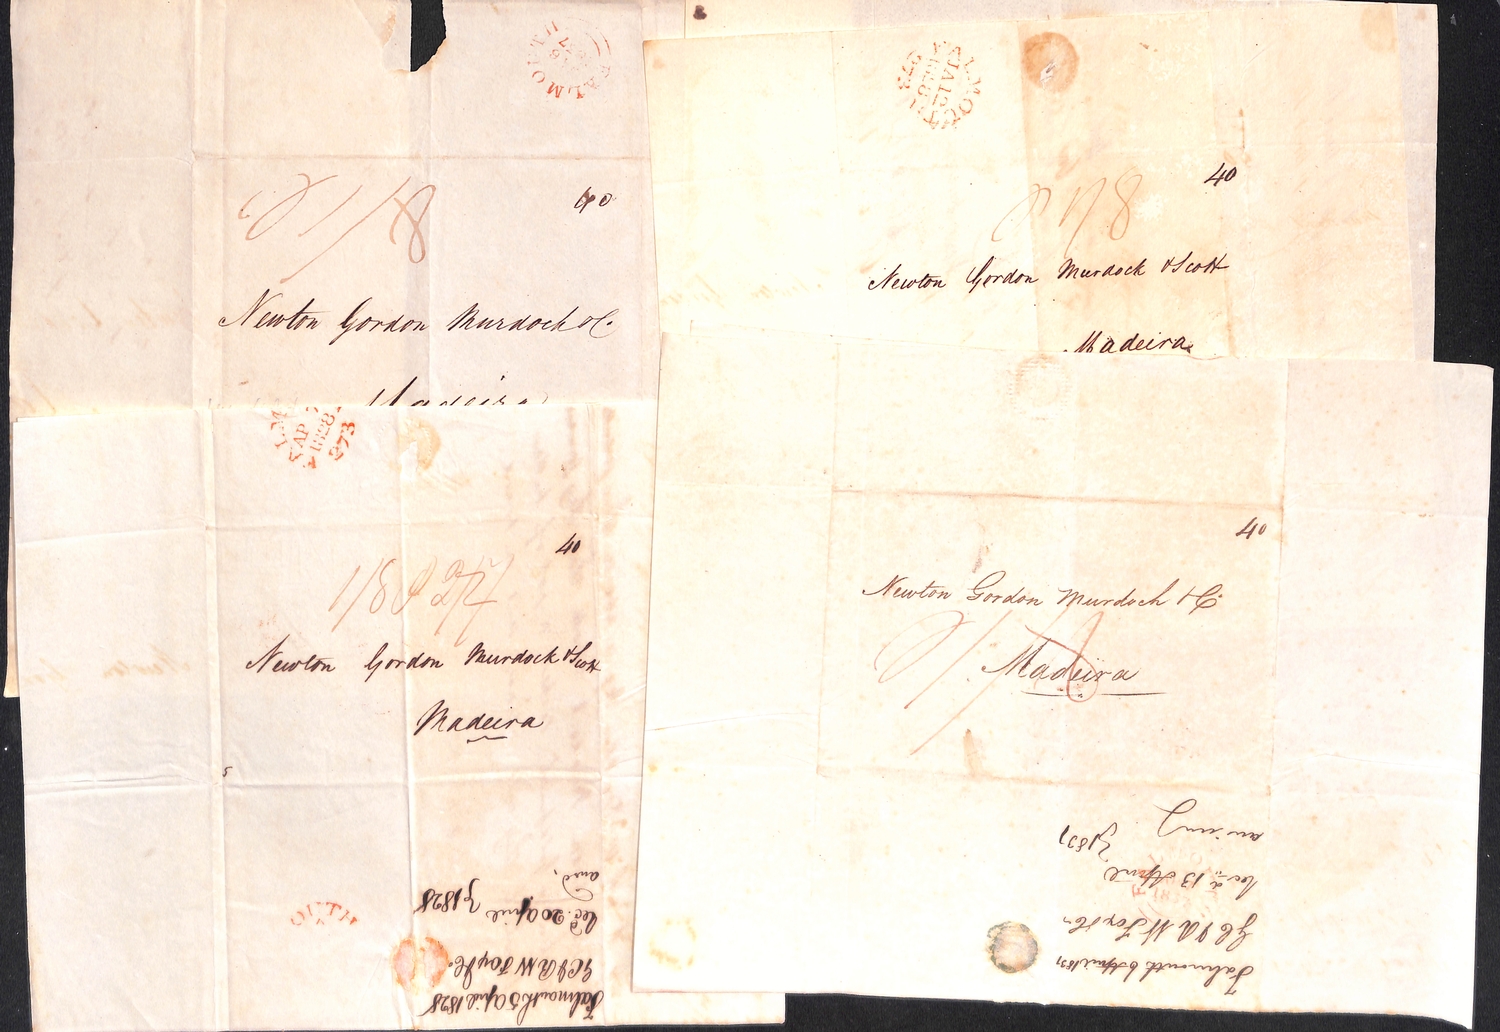 FALMOUTH
40
Newton Gordon Murdoch & Co.
Madeira
FALMOUTH
273
40
Newton Gordon Murdoch & Scott
Madeira
FALM
AP
1828
273
40
1/8
Newton Gordon Murdoch & Scott
Madeira
OUTH
Falmouth 5 April 1828
G C & R W Fox & Co.
Recd. 20 April 1828
ansd.
40
Newton Gordon Murdoch & Co
Madeira
Falmouth 6 April 1831
G C & R W Fox & Co
recd 13 April 1831